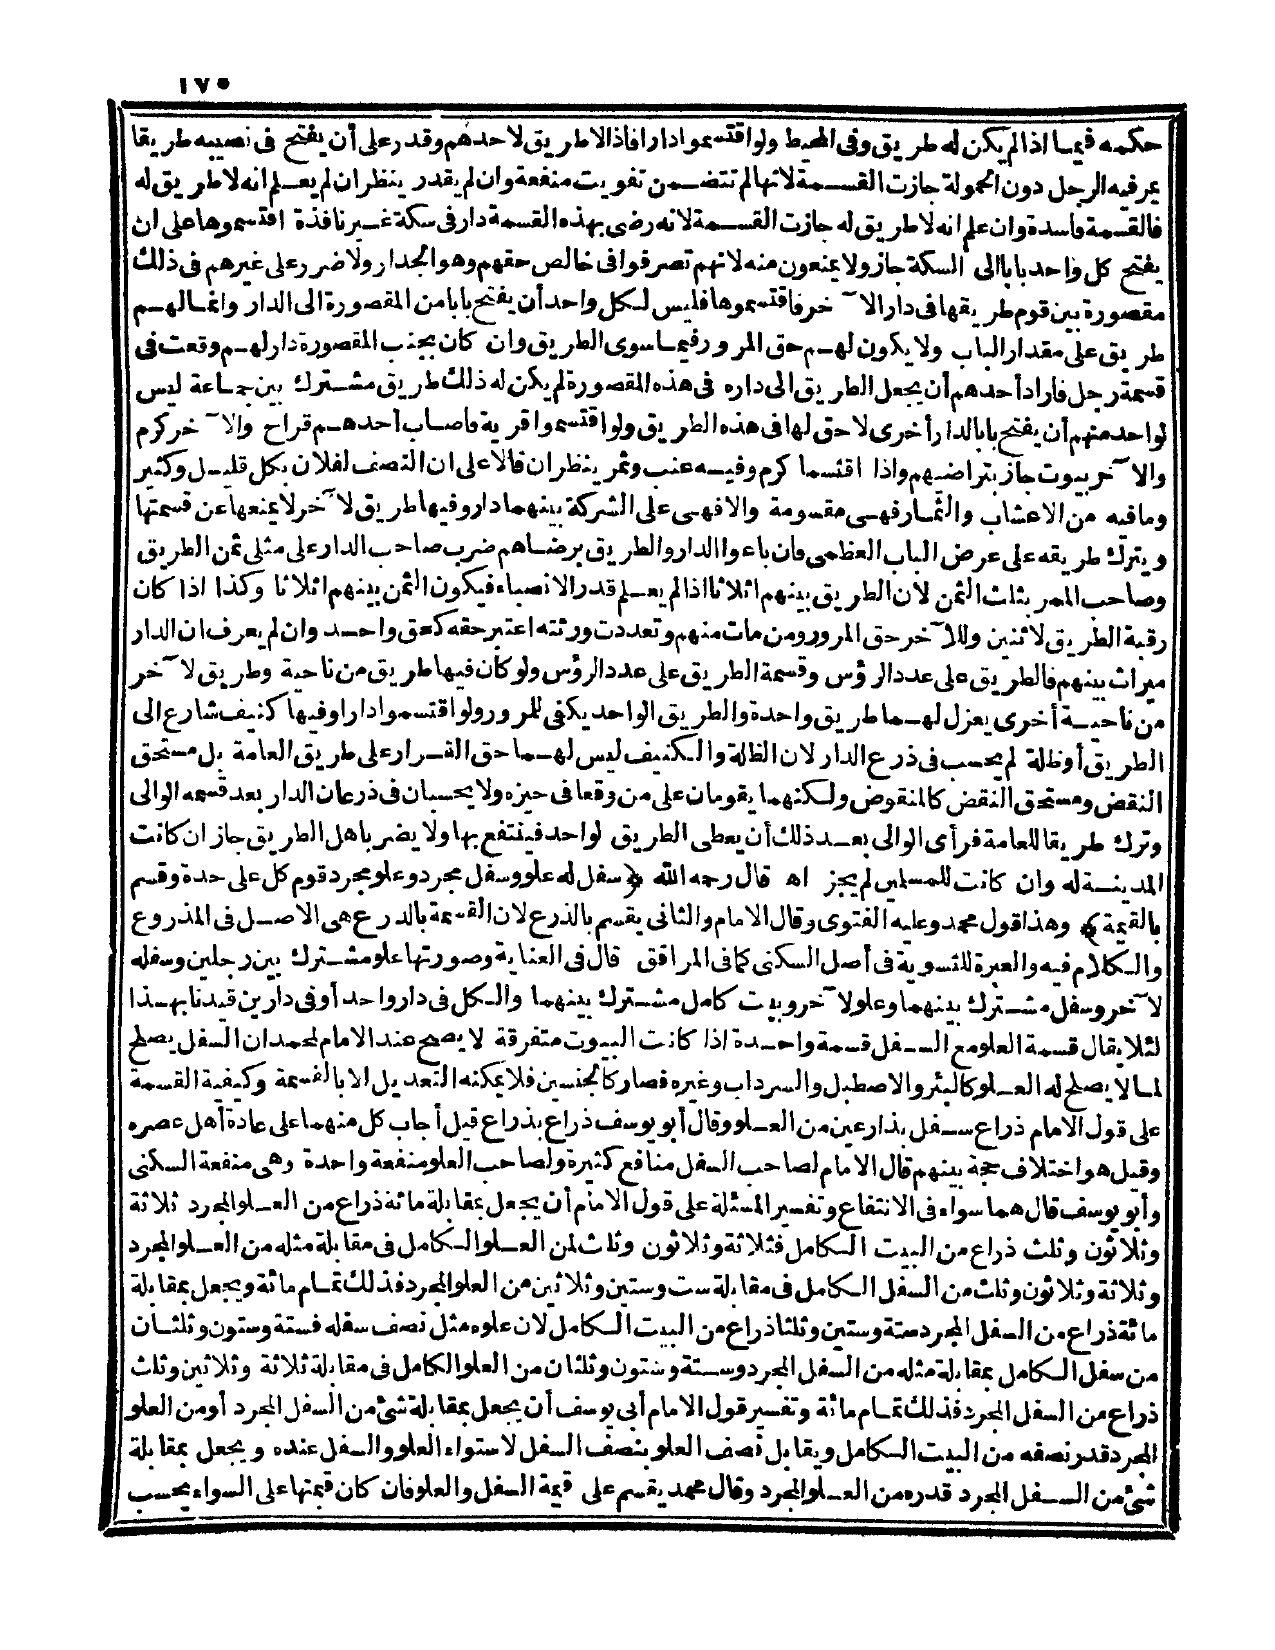 ١٧٥
حكمه فيما اذا لم يكن له طريق وفى المحيط ولو اقتسموا دارا فاذا لا طريق لاحدهم وقدر على أن يفتح فى نصيبه طريقا
يمر فيه الرجل دون الحمولة جازت القسمة لانها لم تتضمن تفويت منفعة وان لم يقدر ينظر ان لم يعلم انه لا طريق له
فالقسمة فاسدة وان علم انه لا طريق له جازت القسمة لانه رضى بهذه القسمة دار فى سكة غير نافذة اقتسموها على ان
يفتح كل واحد بابا الى السكة جاز ولا يمنعون منه لانهم تصرفوا فى خالص حقهم وهو الجدار ولا ضرر على غيرهم فى ذلك
مقصورة بين قوم طريقها فى دار الآخر فاقتسموها فليس لكل واحد أن يفتح بابا من المقصورة الى الدار وانما لهم
طريق على مقدار الباب ولا يكون لهم حق المرور فيما سوى الطريق وان كان بجنب المقصورة دار لهم وقعت فى
قسمة رجل فاراد أحدهم أن يجعل الطريق الى داره فى هذه المقصورة لم يكن له ذلك طريق مشترك بين جماعة ليس
لواحد منهم أن يفتح بابا لدار أخرى لا حق لها فى هذه الطريق ولو اقتسموا قرية فاصاب أحدهم قراح والآخر كرم
والآخر بيوت جاز بتراضيهم واذا اقتسما كرم وفيه عنب وثمر ينظر ان قالا على ان النصف لفلان بكل قليل وكثير
وما فيه من الاعشاب والثمار فهى مقسومة والا فهى على الشركة بينهما دار وفيها طريق لآخر لا يمنعها عن قسمتها
ويترك طريقه على عرض الباب العظمى فان باعوا الدار والطريق برضاهم ضرب صاحب الدار على مثلى ثمن الطريق
وصاحب الممر بثلث الثمن لان الطريق بينهم اثلاثا اذا لم يعلم قدر الانصباء فيكون الثمن بينهم اثلاثا وكذا اذا كان
رقبة الطريق لاثنين وللآخر حق المرور ومن مات منهم وتعددت ورثته اعتبر حقه كحق واحد وان لم يعرف ان الدار
ميراث بينهم فالطريق على عدد الرؤس وقسمة الطريق على عدد الرؤس ولو كان فيها طريق من ناحية وطريق لآخر
من ناحية أخرى يعزل لهما طريق واحدة والطريق الواحد يكفى للمرور ولو اقتسموا دارا وفيها كنيف شارع الى
الطريق أو ظلة لم يحسب فى ذرع الدار لان الظلة والكنيف ليس لهما حق القرار على طريق العامة بل مستحق
النقض ومستحق النقض كالمنقوض ولكنهما يقومان على من وقعا فى حيزه ولا يحسبان فى ذرعان الدار بعد قسمة الوالى
وترك طريقا للعامة فرأى الوالى بعد ذلك أن يعطى الطريق لواحد فينتفع بها ولا يضر باهل الطريق جاز ان كانت
المدينة له وان كانت للمسلمين لم يجز اه قال رحمه الله ﴿سفل له علو وسفل مجرد وعلو مجرد قوم كل على حدة وقسم
بالقيمة﴾ وهذا قول محمد وعليه الفتوى وقال الامام والثانى يقسم بالذرع لان القسمة بالدرع هى الاصل فى المذروع
والكلام فيه والعبرة للتسوية فى أصل السكنى كما فى المرافق قال فى العناية وصورتها علو مشترك بين رجلين وسفله
لآخر وسفل مشترك بينهما وعلو لآخر وبيت كامل مشترك بينهما والكل فى دار واحد أو فى دارين قيدنا بهذا
لئلا يقال قسمة العلو مع السفل قسمة واحدة اذا كانت البيوت متفرقة لا يصح عند الامام لمحمد ان السفل يصلح
لما لا يصلح له العلو كالبئر والاصطبل والسرداب وغيره فصار كالجنسين فلا يمكنه التعديل الا بالقسمة وكيفية القسمة
على قول الامام ذراع سفل بذارعين من العلو وقال أبو يوسف ذراع بذراع قيل أجاب كل منهما على عادة أهل عصره
وقيل هو اختلاف حجة بينهم قال الامام لصاحب السفل منافع كثيرة ولصاحب العلو منفعة واحدة وهى منفعة السكنى
وأبو يوسف قال هما سواء فى الانتفاع وتفسير المسئلة على قول الامام أن يجعل بمقابلة مائة ذراع من العلو المجرد ثلاثة
وثلاثون وثلث ذراع من البيت الكامل فثلاثة وثلاثون وثلث لمن العلو الكامل فى مقابلة مثله من العلو المجرد
وثلاثة وثلاثون وثلث من السفل الكامل فى مقابلة ست وستين وثلاثين من العلو المجرد فذلك تمام مائة ويجعل بمقابلة
مائة ذراع من السفل المجرد ستة وستين وثلثا ذراع من البيت الكامل لان علوه مثل نصف سفله فستة وستون وثلثان
من سفل الكامل بمقابلة مثله من السفل المجرد وستة وستون وثلثان من العلو الكامل فى مقابلة ثلاثة وثلاثين وثلث
ذراع من السفل المجرد فذلك تمام مائة وتفسير قول الامام أبى يوسف أن يجعل بمقابلة شئ من السفل المجرد أو من العلو
المجرد قدر نصفه من البيت الكامل ويقابل نصف العلو بنصف السفل لاستواء العلو والسفل عنده ويجعل بمقابلة
شئ من السفل المجرد قدره من العلو المجرد وقال محمد يقسم على قيمة السفل والعلو فان كان قيمتها على السواء يحسب